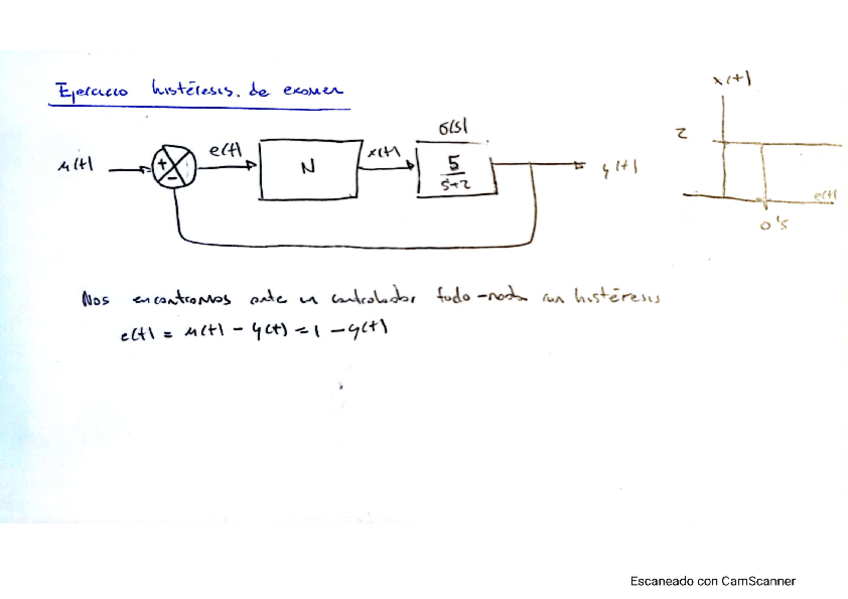 Ejercicio histéresis de examen
x(t)
G(s)
2
u(t) + - e(t) N x(t) 5/s+2 y(t)
e(t)
0'5
Nos encontramos ante un controlador todo-nada con histéresis
e(t) = u(t) - y(t) = 1 - y(t)
Escaneado con CamScanner